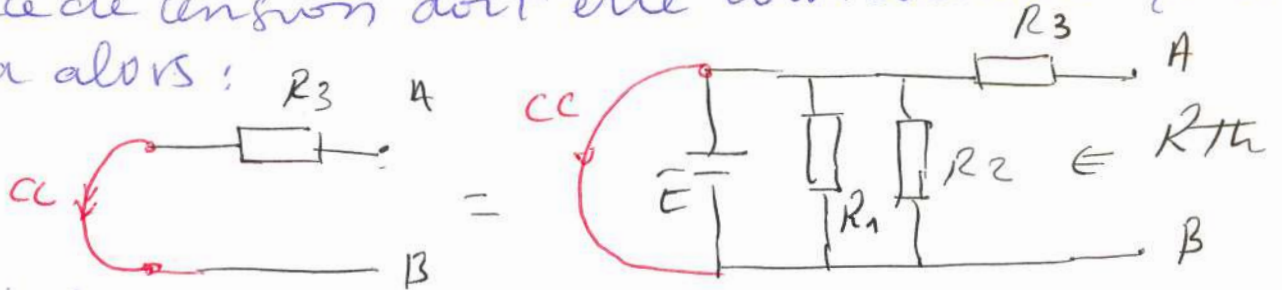 de tension doit être
a alors :
R3 A
CC
B
=
R3 A
CC
E R1 R2 ∈ RTh
B